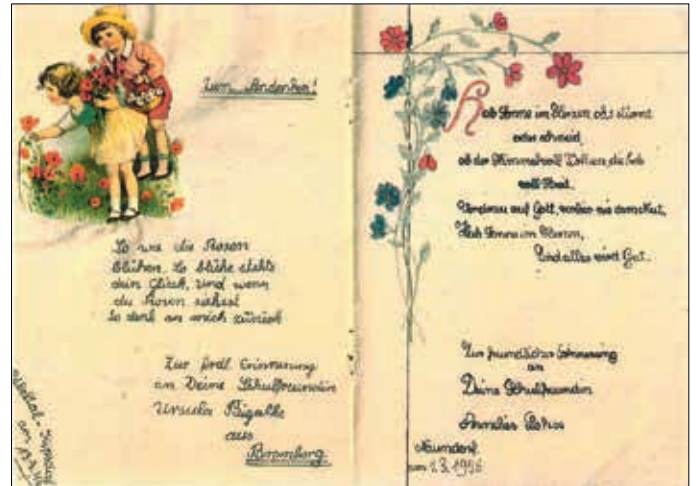 Zum Andenken!
So wie die Rosen
blühen. So blühe stehts
dein Glück, und wenn
du Rosen siehest
So denk an mich zurück
Zur frdl. Erinnerung
an Deine Schulfreundin
Ursula
aus
Bromberg.
Hab Sonne im Herzen ob's stürmt
oder schneid,
ob der Himmel voll Wolken, die Erde
voll Streit.
Vertrau auf Gott, verlier nie den Mut,
Hab Sonne im Herzen,
Und alles wird Gut.
Zur freundlichen Erinnerung
an
Deine Schulfreundin
Annelies
Naundorf.
am 2.3.1956